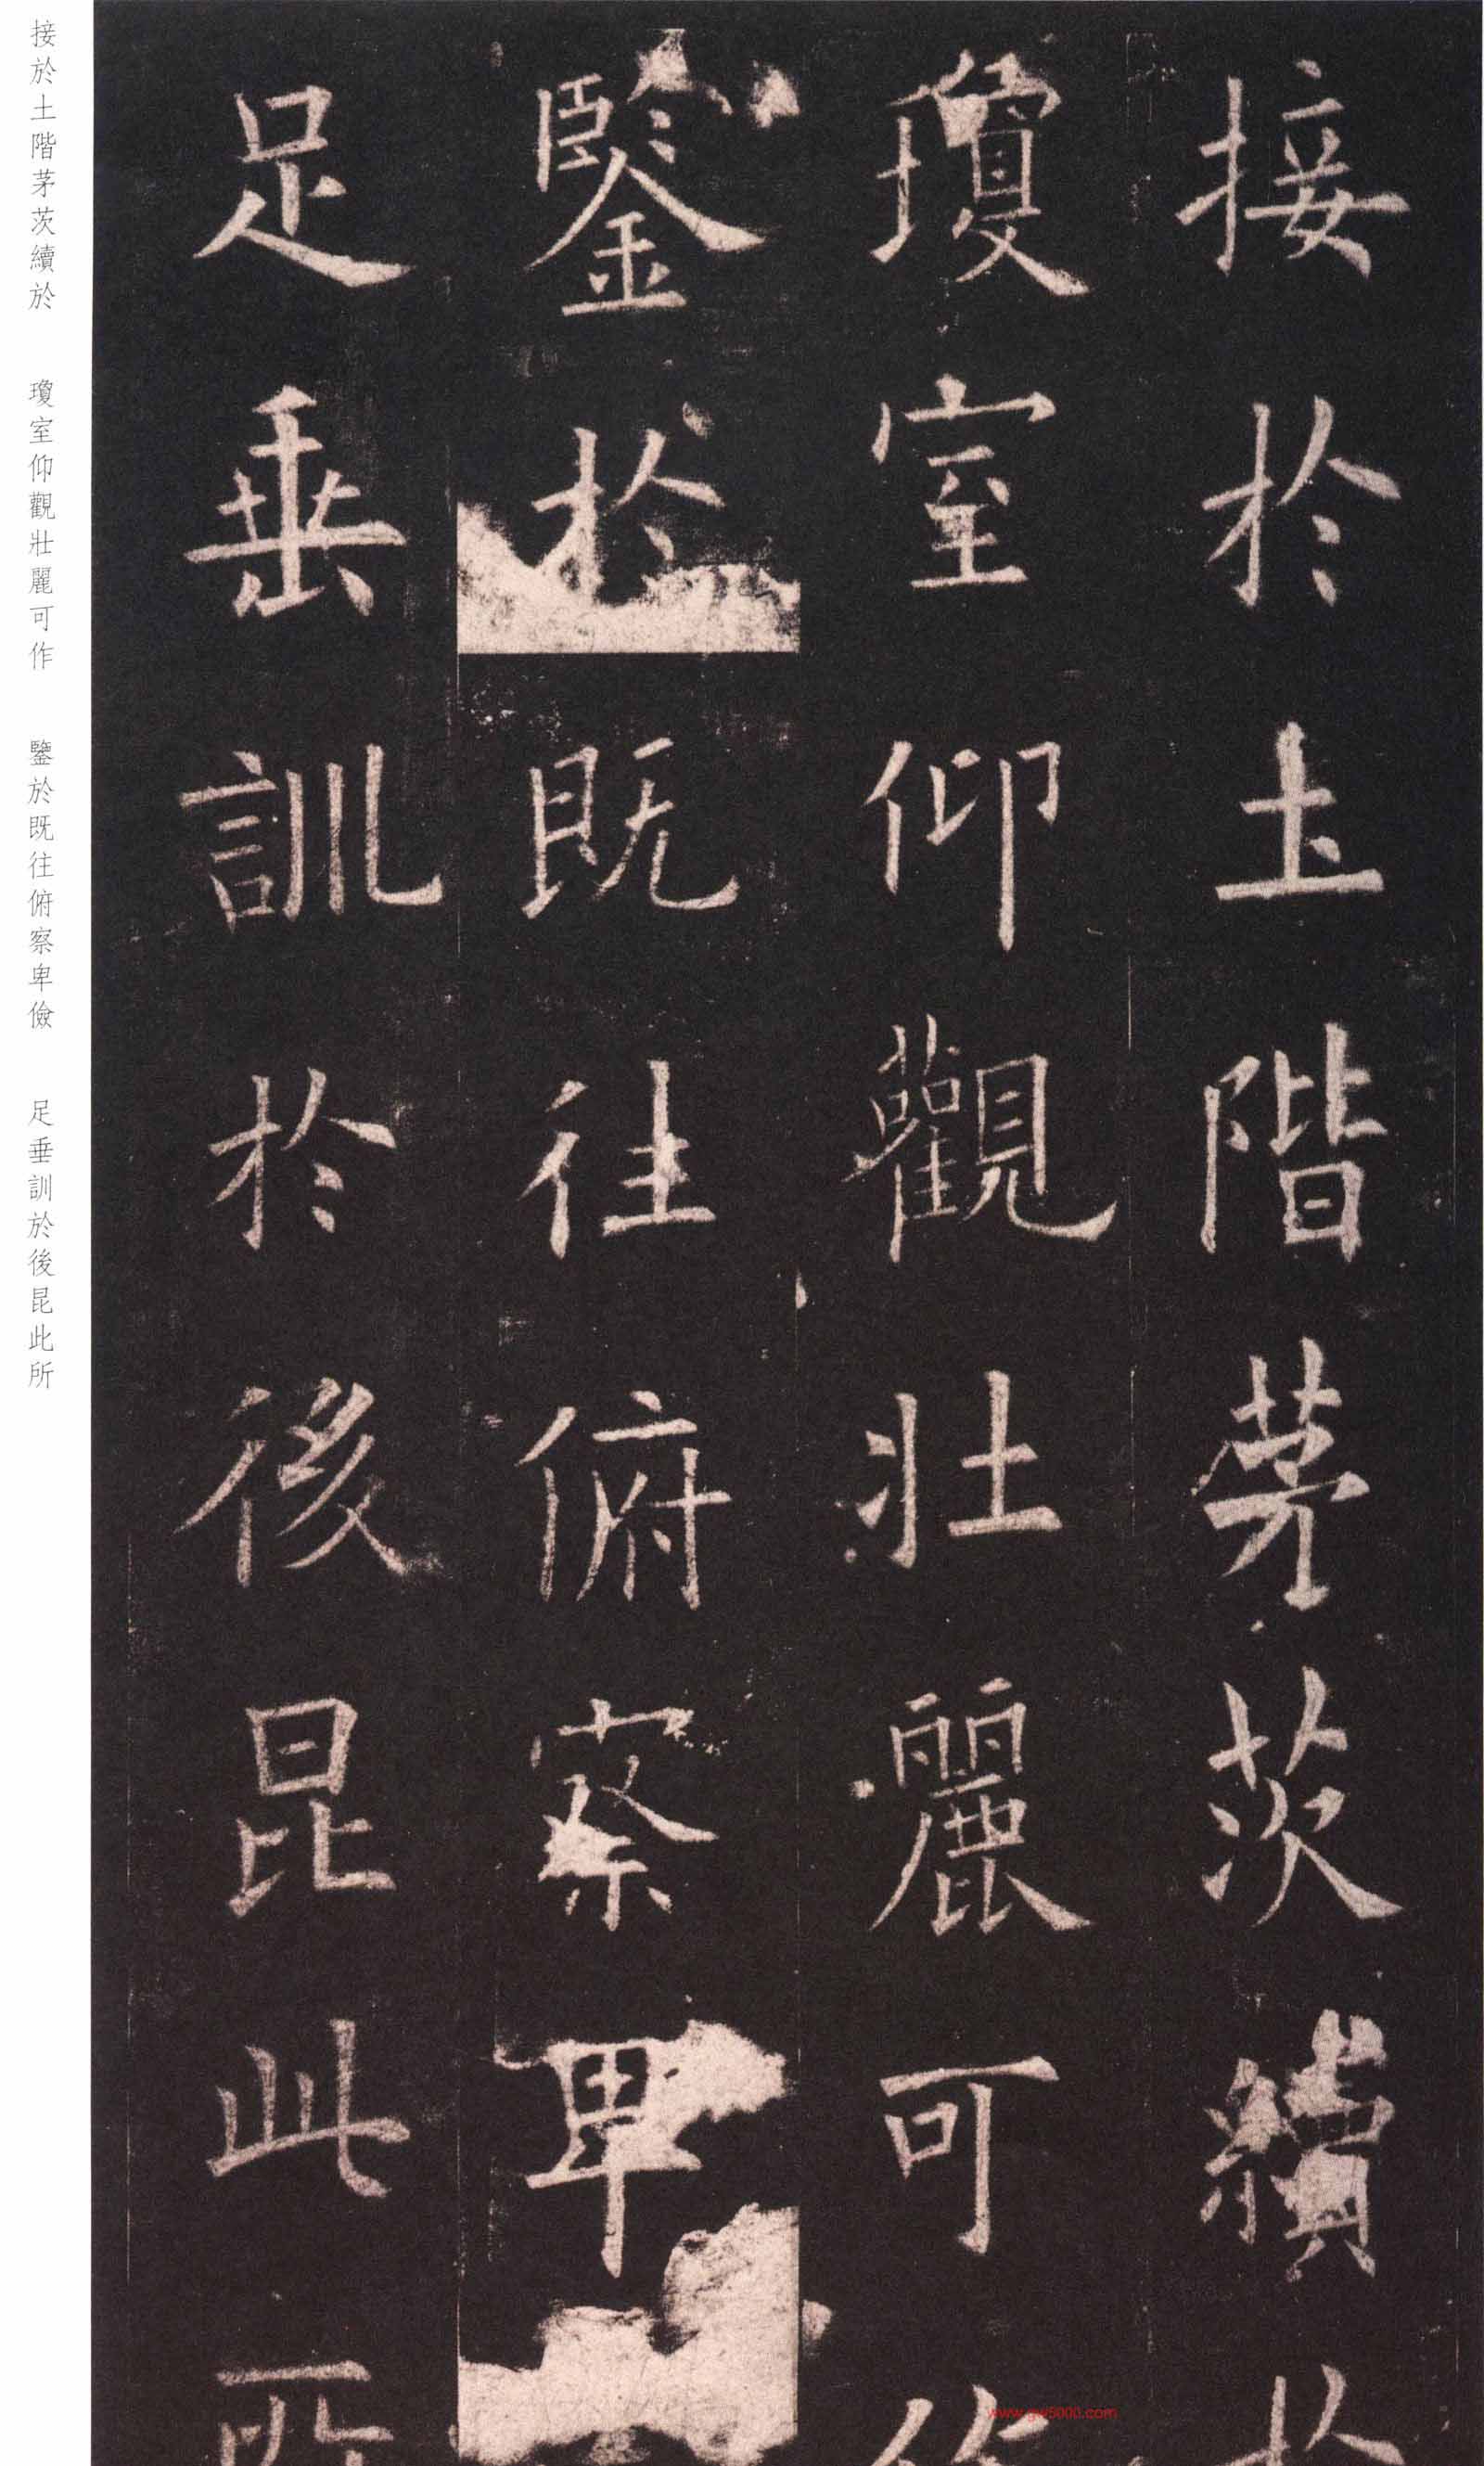 接於土階茅茨續於
瓊室仰觀壯麗可作
鑒於既往俯察卑
足垂訓於後昆此所
接於土階茅茨續於 瓊室仰觀壯麗可作 鑒於既往俯察卑儉 足垂訓於後昆此所